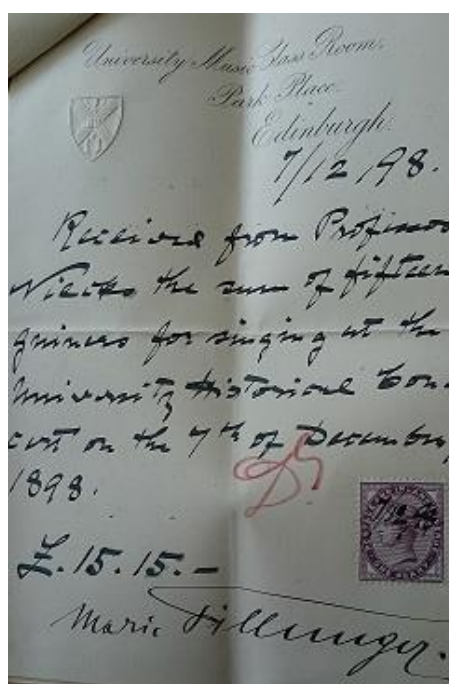 University Music Class Room,
Park Place,
Edinburgh.
7/12/98.
Received from Professor
Niecks the sum of fifteen
guineas for singing at the
University Historical Con-
cert on the 7th of December,
1898.
£. 15. 15. –
Marie Fillunger.